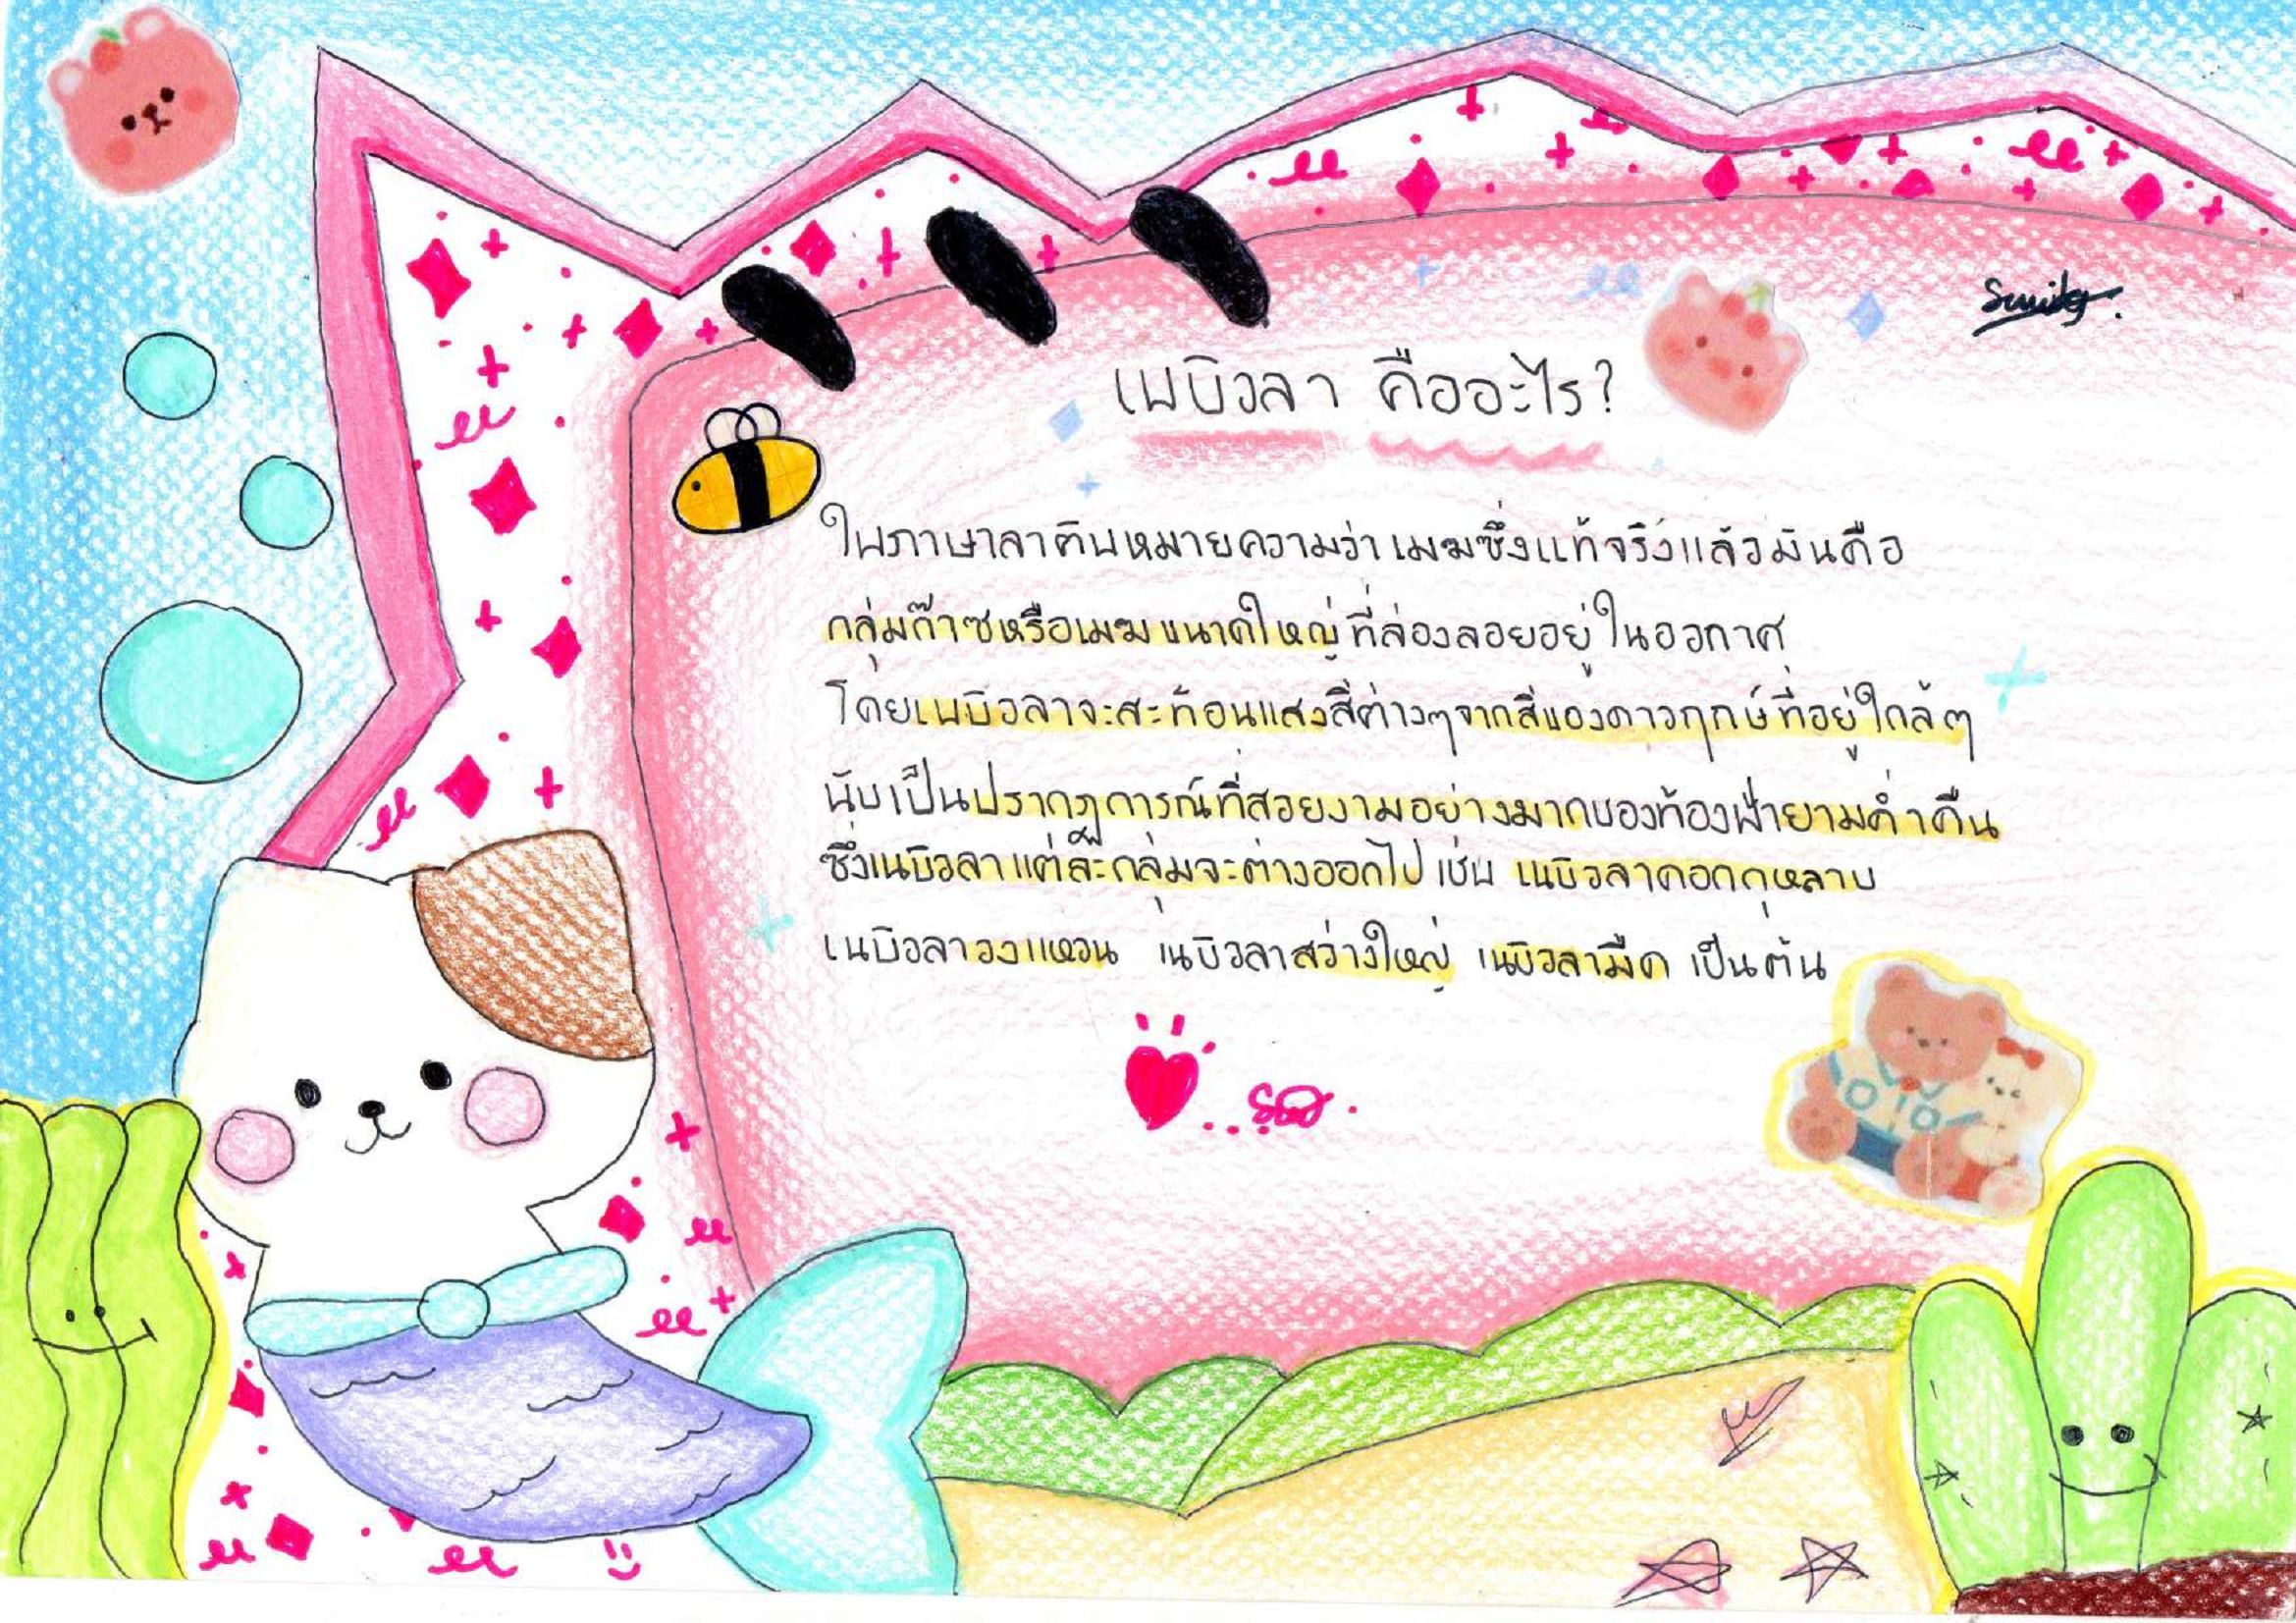 เนบิวลา คืออะไร?
ในภาษาลาตินหมายความว่า เมฆซึ่งแท้จริงแล้วมันคือ
กลุ่มก๊าซหรือเมฆขนาดใหญ่ที่ล่องลอยอยู่ในอวกาศ
โดยเนบิวลาจะสะท้อนแสงสีต่างๆจากสีของดาวฤกษ์ที่อยู่ใกล้ๆ
นับเป็นปรากฏการณ์ที่สวยงามอย่างมากของท้องฟ้ายามค่ำคืน
ซึ่งเนบิวลาแต่ละกลุ่มจะต่างออกไป เช่น เนบิวลาดอกกุหลาบ
เนบิวลาวงแหวน เนบิวลาสว่างใหญ่ เนบิวลามืด เป็นต้น